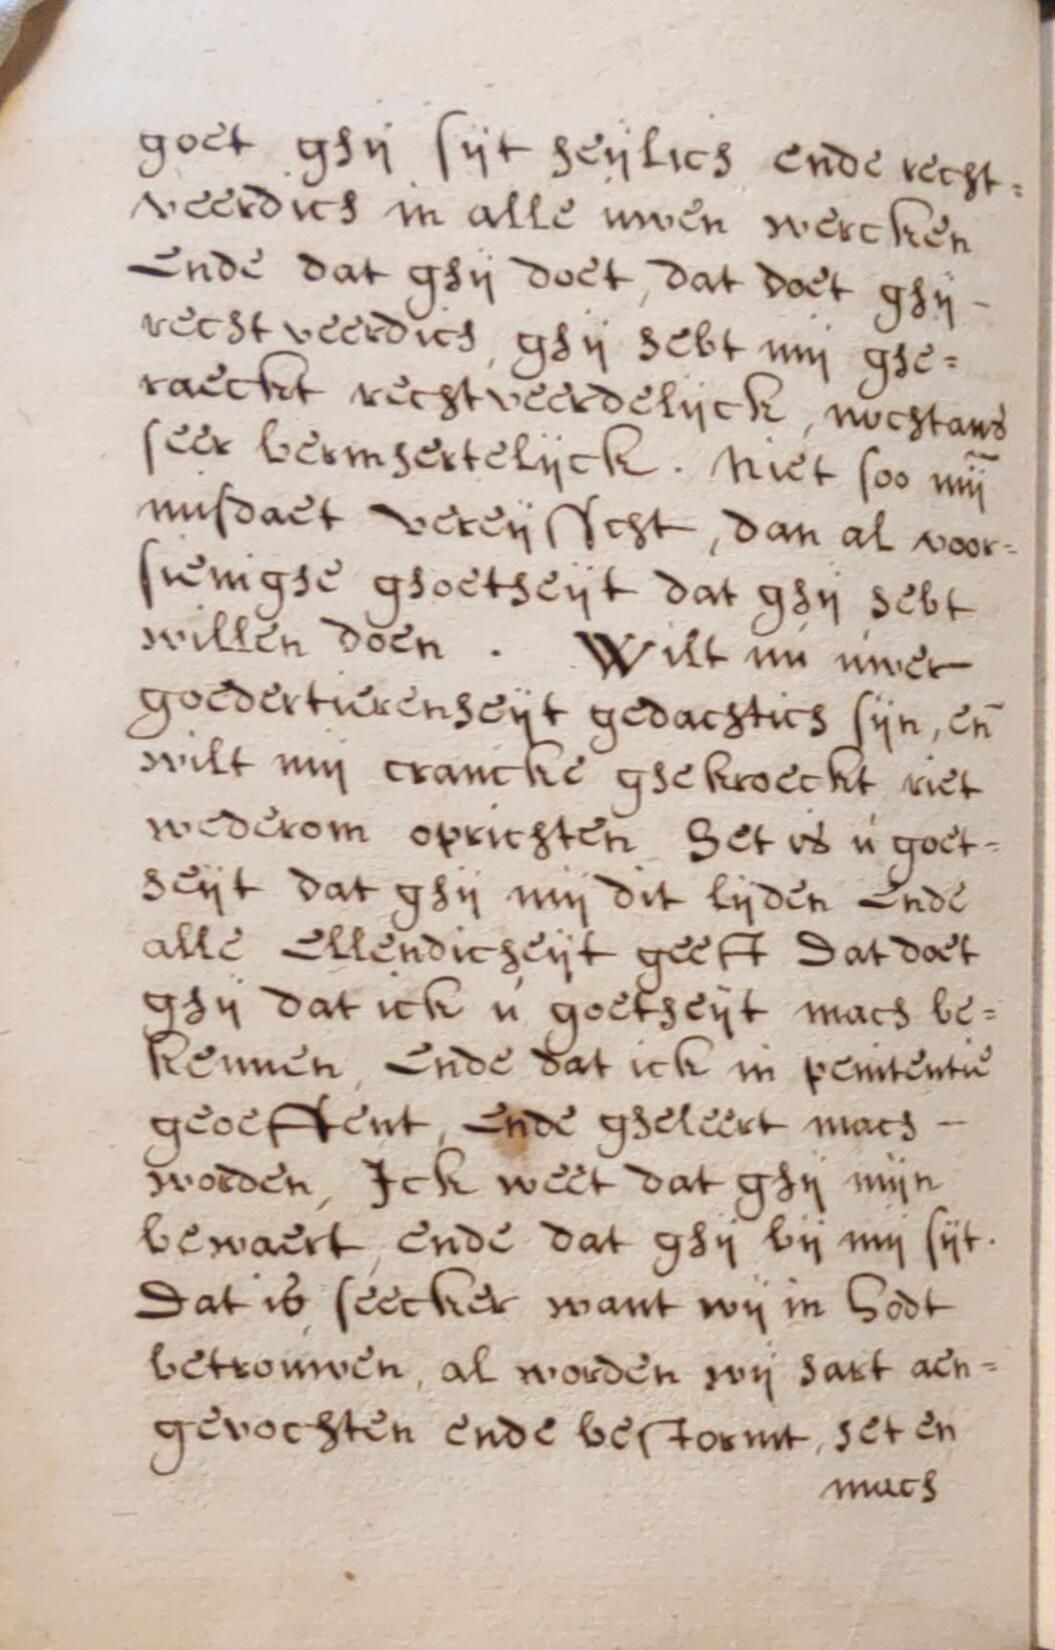 goet ghij sijt heijlich ende recht=
veerdich in alle uwen wercken
Ende dat ghij doet, dat doet ghij -
rechtveerdich, ghij hebt mij ghe=
raeckt rechtveerdelijck, nochtans
seer bermhertelijck. Niet soo mij̄
misdaet vereijsscht, dan al voor=
sienighe ghoetheijt dat ghij hebt
willen doen. Wilt nu uwer
goedertierenheijt gedachtich sijn, en̄
wilt mij crancke ghekroeckt riet
wederom oprichten Het is u goet=
heijt dat ghij mij dit lijden Ende
alle Ellendicheijt geeft Dat doet
ghij dat ick u goetheijt mach be=
kennen, Ende dat ick in penitentie
geoeffent, Ende gheleert mach -
worden, Ick weet dat ghij mijn
bewaert, ende dat ghij bij mij sijt.
Dat is seecker want wij in Godt
betrouwen, al worden wij hart aen=
gevochten ende bestormt, het en
mach